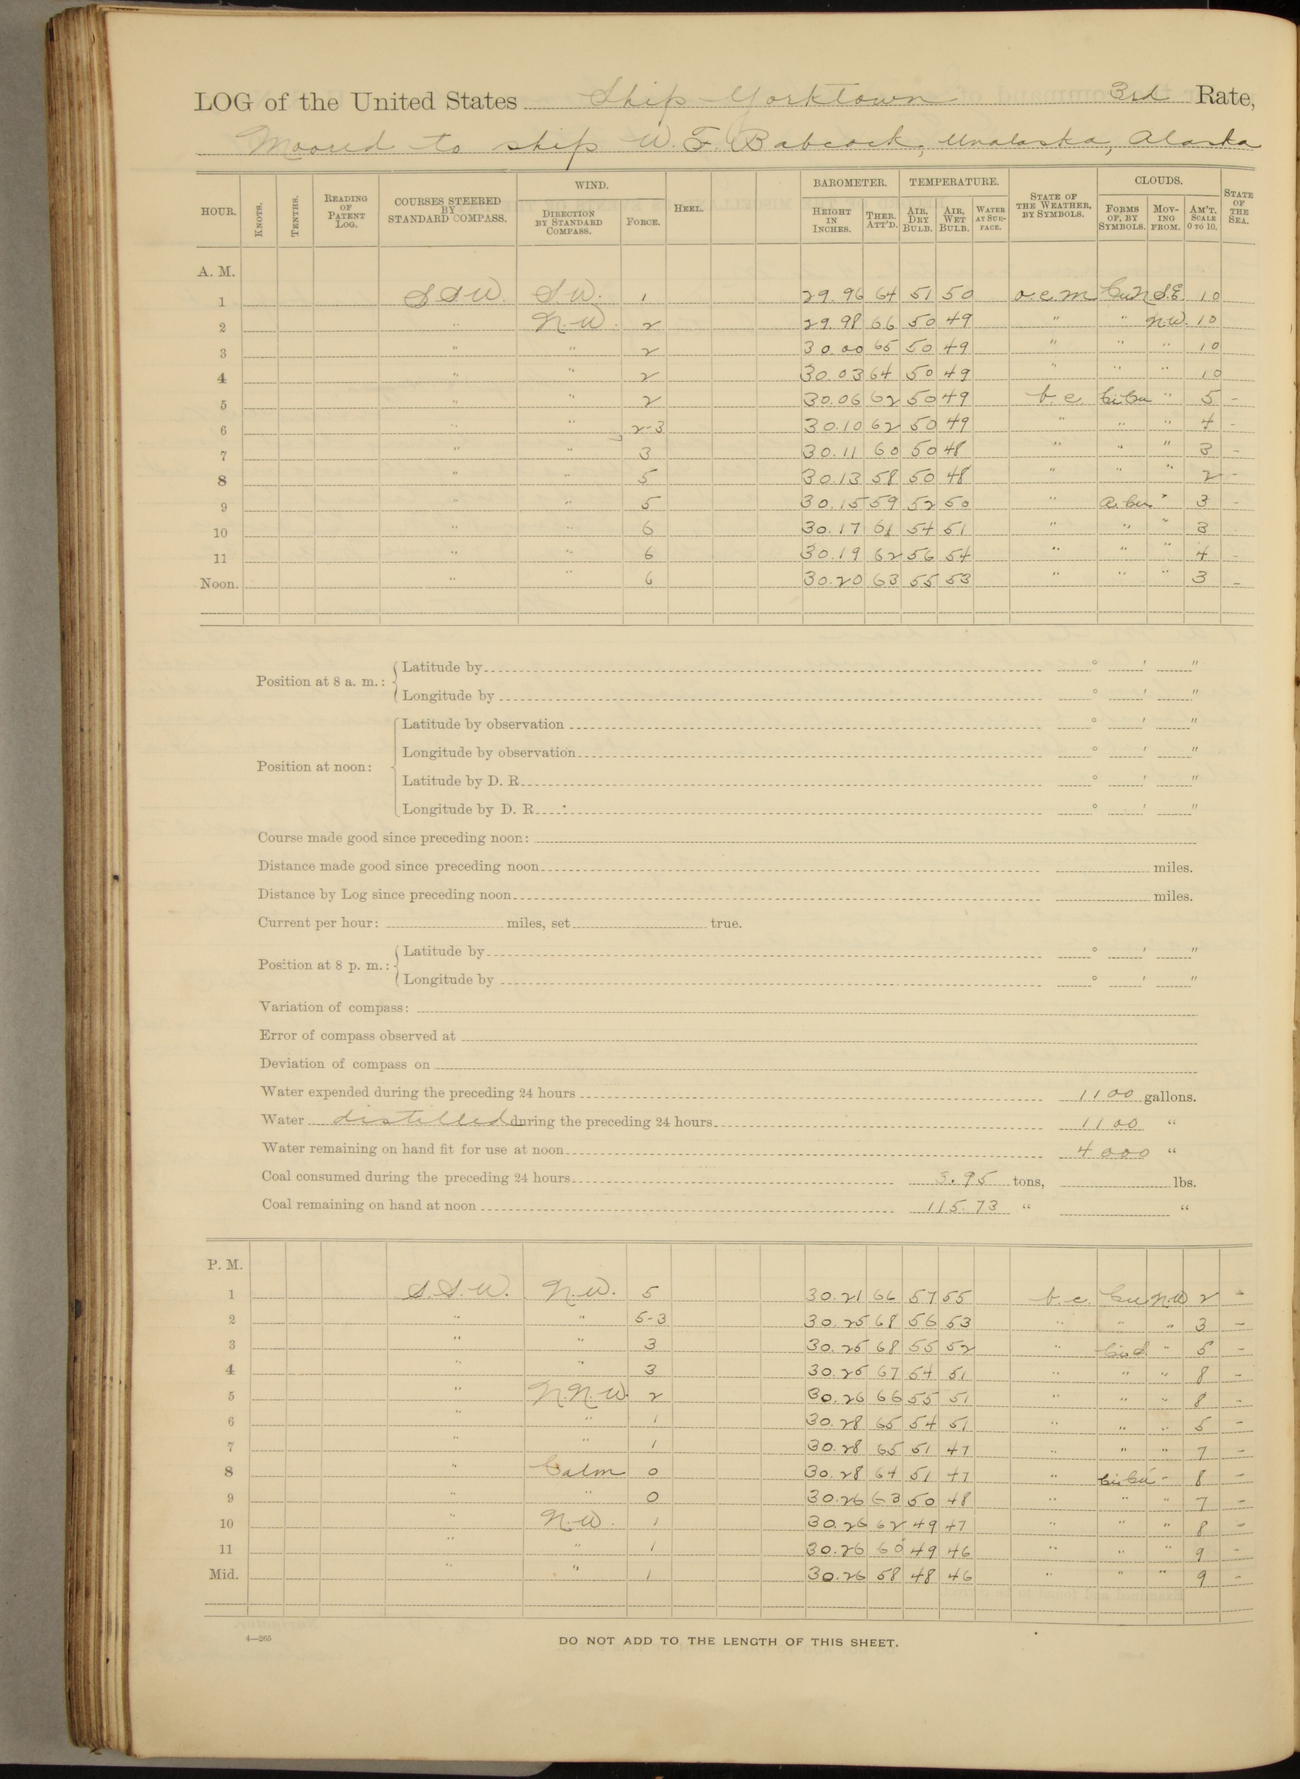 LOG of the United States Ship Yorktown 3rd Rate,
Moored to ship W. F. Babcock, Unalaska, Alaska
HOUR. KNOTS. TENTHS. READING OF PATENT LOG. COURSES STEERED BY STANDARD COMPASS. WIND. DIRECTION BY STANDARD COMPASS. FORCE. HEEL. BAROMETER. HEIGHT IN INCHES. THER. ATT'D. TEMPERATURE. AIR, DRY BULB. AIR, WET BULB. WATER AT SURFACE. STATE OF THE WEATHER, BY SYMBOLS. CLOUDS. FORMS OF, BY SYMBOLS. MOVING FROM. AM'T. SCALE 0 TO 10. STATE OF THE SEA.
A. M.
1 SSW S.W. 1 29.96 64 51 50 o.c.m CuN S.E 10
2 " N.W. 2 29.98 66 50 49 " " N.W. 10
3 " " 2 30.00 65 50 49 " " " 10
4 " " 2 30.03 64 50 49 " " " 10
5 " " 2 30.06 62 50 49 b.c. CiCu " 5 -
6 " " 2-3 30.10 62 50 49 " " " 4 -
7 " " 3 30.11 60 50 48 " " " 3 -
8 " " 5 30.13 58 50 48 " " " 2 -
9 " " 5 30.15 59 52 50 " " 3 -
10 " " 6 30.17 61 54 51 " " " 3
11 " " 6 30.19 62 56 54 " " " 4 -
Noon. " " 6 30.20 63 55 53 " " " 3 -
Position at 8 a. m.: Latitude by ° ′ ″
Longitude by ° ′ ″
Latitude by observation ° ′ ″
Longitude by observation ° ′ ″
Position at noon:
Latitude by D. R. ° ′ ″
Longitude by D. R. ° ′ ″
Course made good since preceding noon:
Distance made good since preceding noon miles.
Distance by Log since preceding noon miles.
Current per hour: miles, set true.
Position at 8 p. m.: Latitude by ° ′ ″
Longitude by ° ′ ″
Variation of compass:
Error of compass observed at
Deviation of compass on
Water expended during the preceding 24 hours 1100 gallons.
Water distilled during the preceding 24 hours 1100 "
Water remaining on hand fit for use at noon 4000 "
Coal consumed during the preceding 24 hours .95 tons, lbs.
Coal remaining on hand at noon 115.73 " "
P. M.
1 S.S.W. N.W. 5 30.21 66 57 55 b.c. Cu N.W 2 -
2 " " 5-3 30.25 68 56 53 " " " 3 -
3 " " 3 30.25 68 55 52 " " 5 -
4 " " 3 30.25 67 54 51 " " " 8 -
5 " N.N.W. 2 30.26 66 55 51 " " " 8 -
6 " " 1 30.28 65 54 51 " " " 5 -
7 " " 1 30.28 65 51 47 " " " 7 -
8 " Calm 0 30.28 64 51 47 " CiCu - 8 -
9 " " 0 30.26 63 50 48 " " " 7 -
10 " N.W. 1 30.26 62 49 47 " " " 8 -
11 " " 1 30.26 60 49 46 " " " 9 -
Mid. " " 1 30.26 58 48 46 " " " 9 -
4—265
DO NOT ADD TO THE LENGTH OF THIS SHEET.